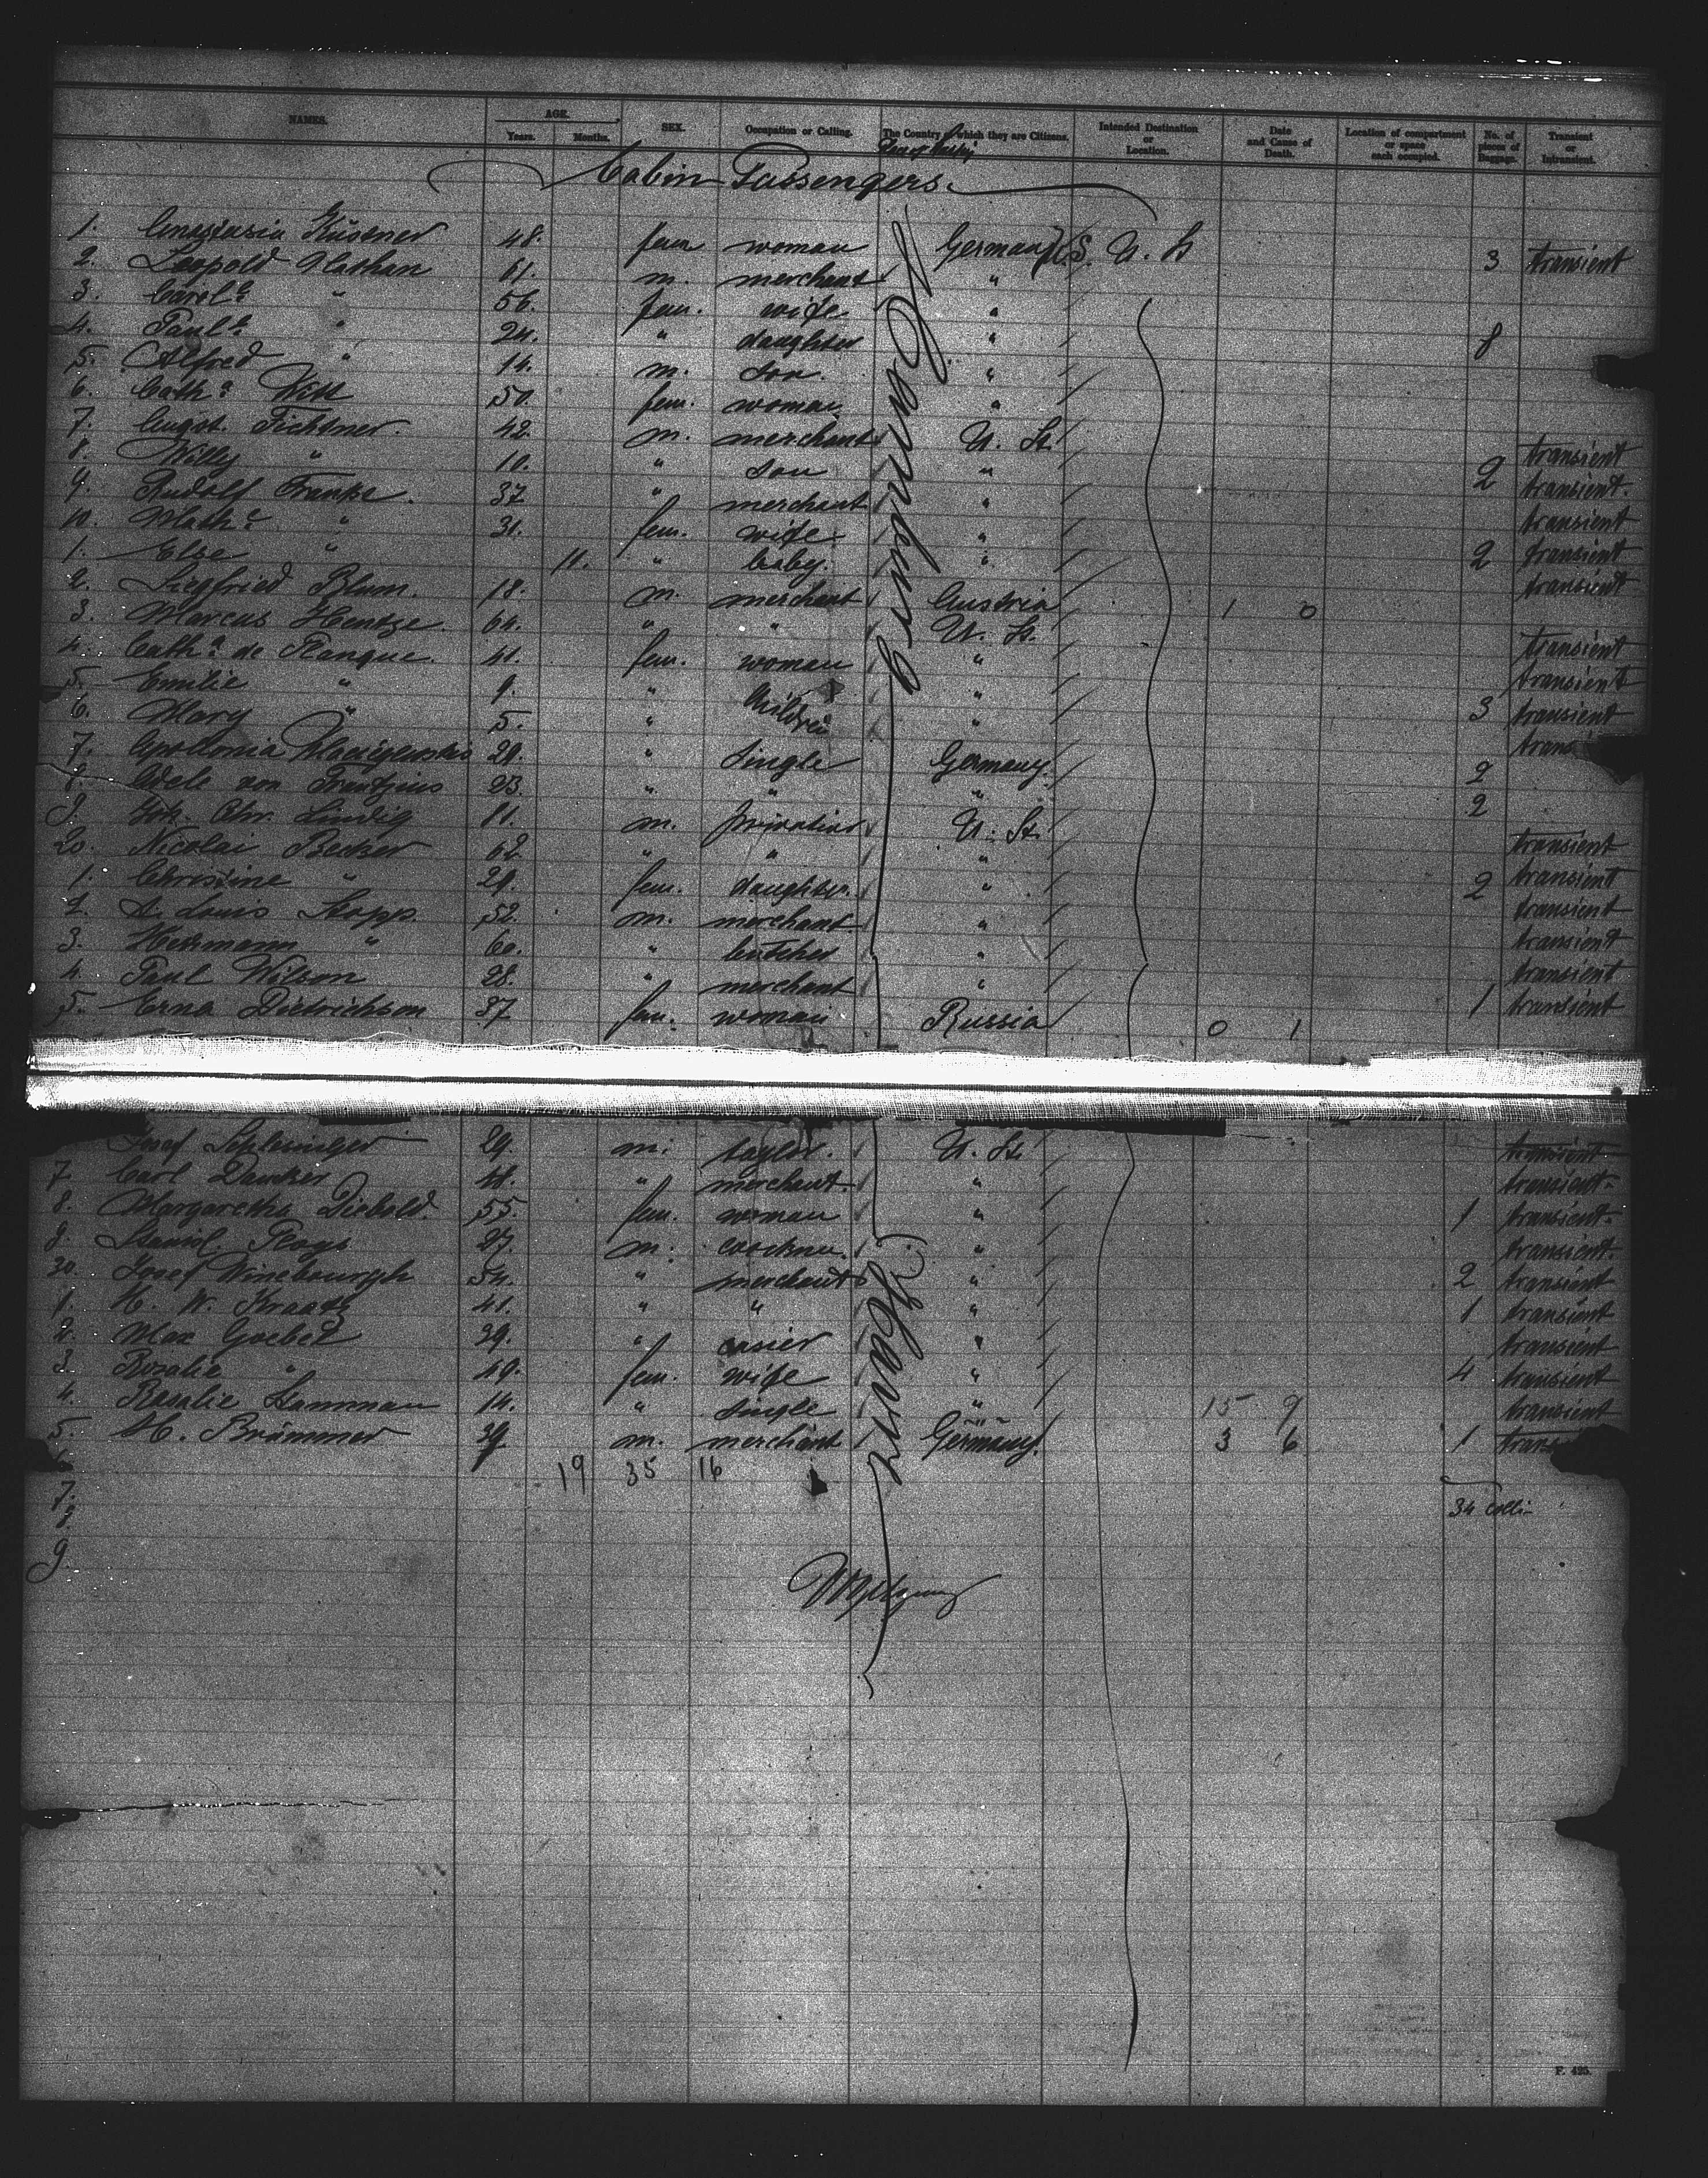 NAMES. AGE. Years. Months. SEX. Occupation or Calling. The Country of which they are Citizens. Intended Destination or Location. Date and Cause of Death. Location of compartment or space each occupied. No. of pieces of Baggage. Transient or Intransient.
Cabin Passengers.
1. Anastasia Küssner 48. fem woman Germany U.S. U. St 3 transient
2. Leopold Nathan 61. m. merchant "
3. Carol.a " 56. fem. wife "
4. Paul.a " 24. " daughter " 8
5. Alfred " 14. m. son. "
6. Cath.a Witt 50. fem. woman "
7. August. Fichtner. 42. m. merchant U. St. transient
8. Willy " 10. " son " 2 transient.
9. Rudolf Franke. 37 " merchant " transient
10. Math.e " 31. fem. wife " 2 transient
1. Else " 11. " baby. " transient
2. Siegfried Blum. 18. m. merchant Austria 1 0
3. Marcus Hentze. 64. " " U. St. transient
4. Cath.a de Planque. 41. fem. woman " transient
5. Emilie " 9. " children " 3 transient
6. Mary " 5. " " trans
7. Apollonia 29. " single Germany. 2
8. Adele von Frantzius 23. " " " 2
9. Joh. Chr. Lindig 81. m. privatier U. St. transient
20. Nicolai Becker 62 " " " transient
1. Christine " 29. fem. daughter. " 2 transient
2. A. Louis Stopp. 52. m. merchant " transient
3. Hermann " 60. " butcher " transient
4. Paul Wilson 28. " merchant " 1 transient
5. Erna Dietrichson 37 fem. woman Russia 0 1
Josef Schlesinger 29. m. taylor. U. St. transient
7. Carl Dancker 44. " merchant. " transient.
8. Margaretha Diebold. 55. fem. woman " 1 transient.
9. 27. m. " transient.
30. Josef Winebourgh 54. " merchant " 2 transient
1. H. W. Kraatz 41. " " " 1 transient
2. Max Goebel 39. " casier " transient
3. Rosalie " 49. fem. wife " 4 transient
4. Rosalie Hamman 14. " single " 15 9 transient
5. H. Brümmer 39 m. merchant Germany. 3 6 1 trans
19 35 16
7. 34 Colli
8.
9.
F. 425.